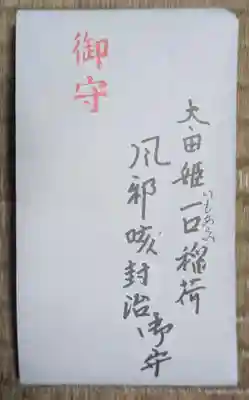 御守
太田姫一口稲荷
いもあらい
風邪咳封治御守